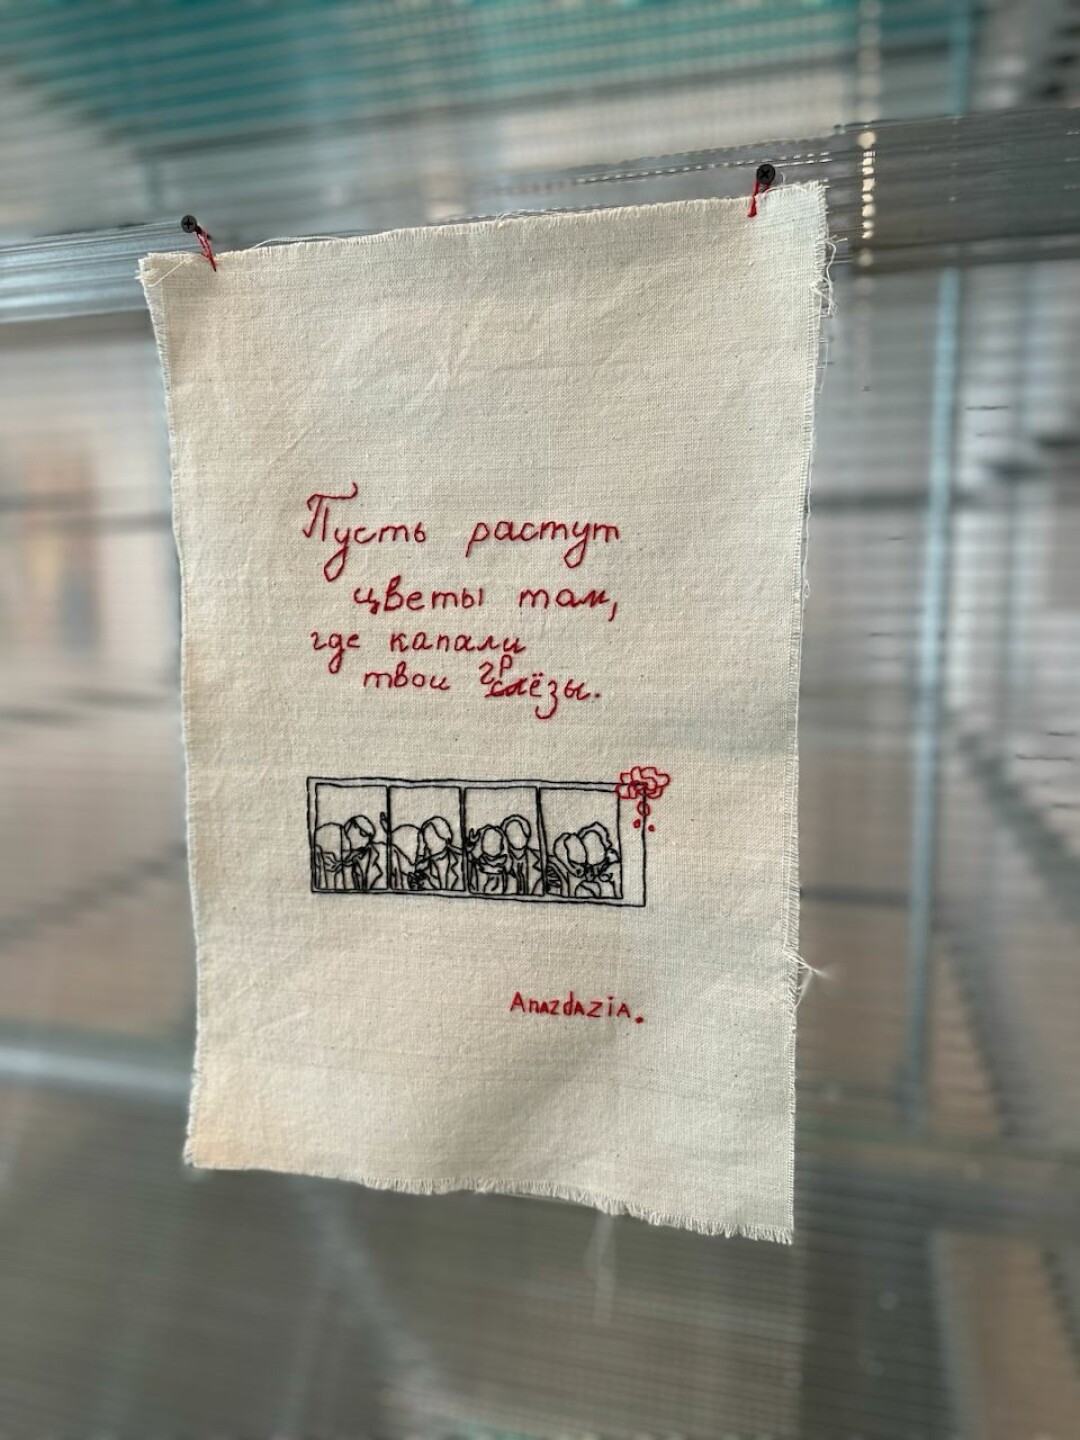 Пусть растут
цветы там,
где капали
твои грёзы.
Anazdazia.